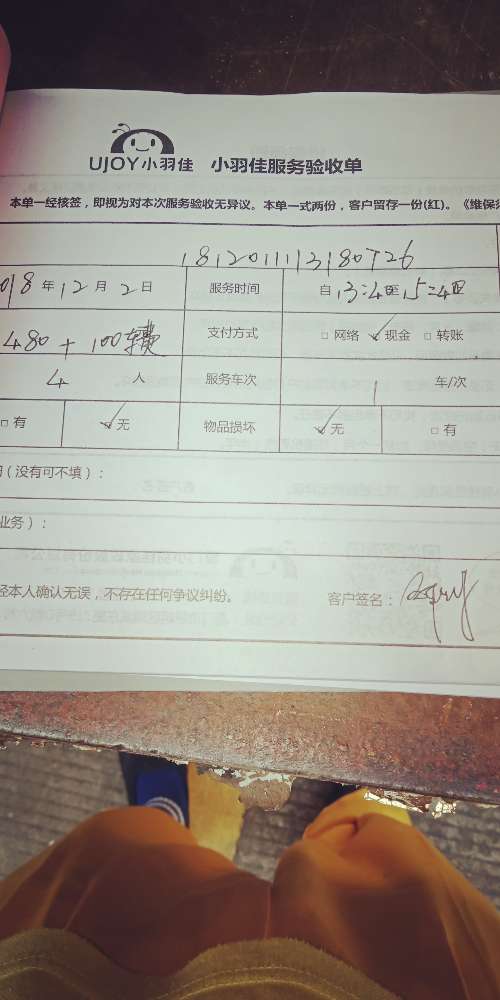 UJOY小羽佳 小羽佳服务验收单
本单一经核签，即视为对本次服务验收无异议。本单一式两份，客户留存一份(红)。《维保
1812011113180726
018年12月2日 服务时间 自13:40至15:40
480+100车费 支付方式 □网络 ✓现金 □转账
4人 服务车次 1车/次
□有 ✓无 物品损坏 ✓无 □有
(没有可不填)：
业务)：
经本人确认无误，不存在任何争议纠纷。 客户签名：